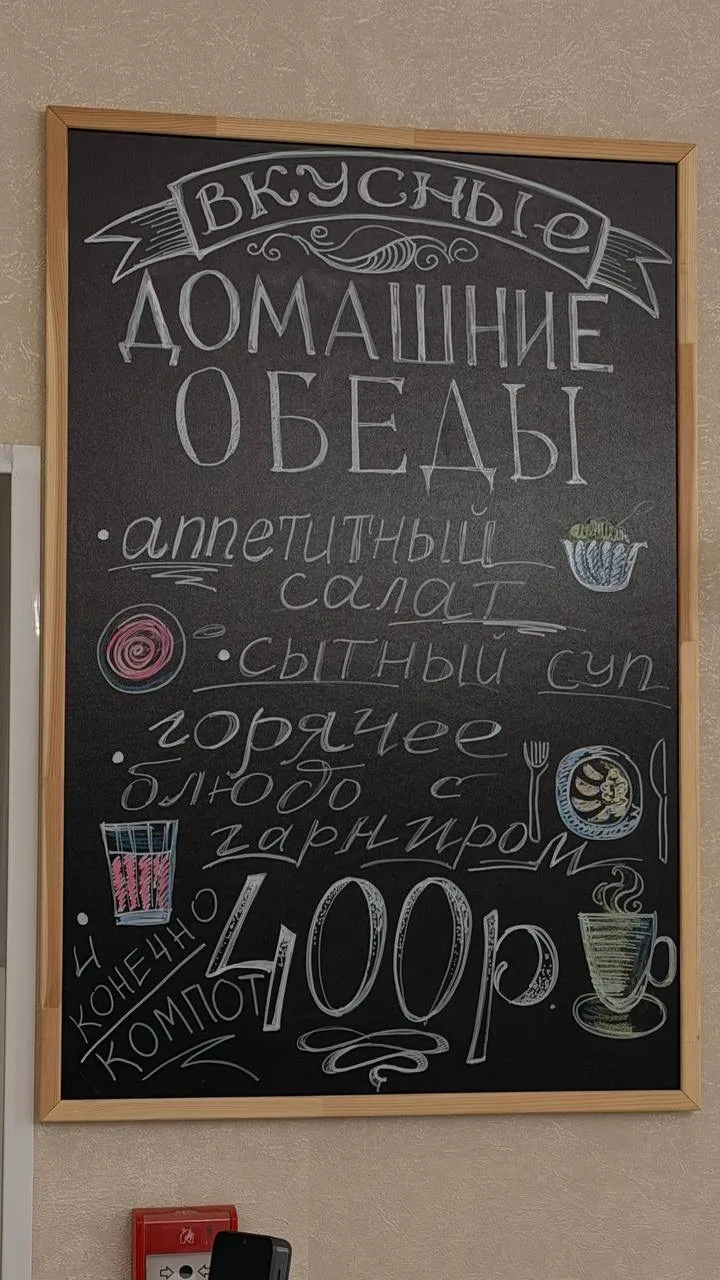 вкусные
ДОМАШНИЕ
ОБЕДЫ
• аппетитный
салат
• сытный суп
• горячее
блюдо с
гарниром
• И
КОНЕЧНО
КОМПОТ
400р.